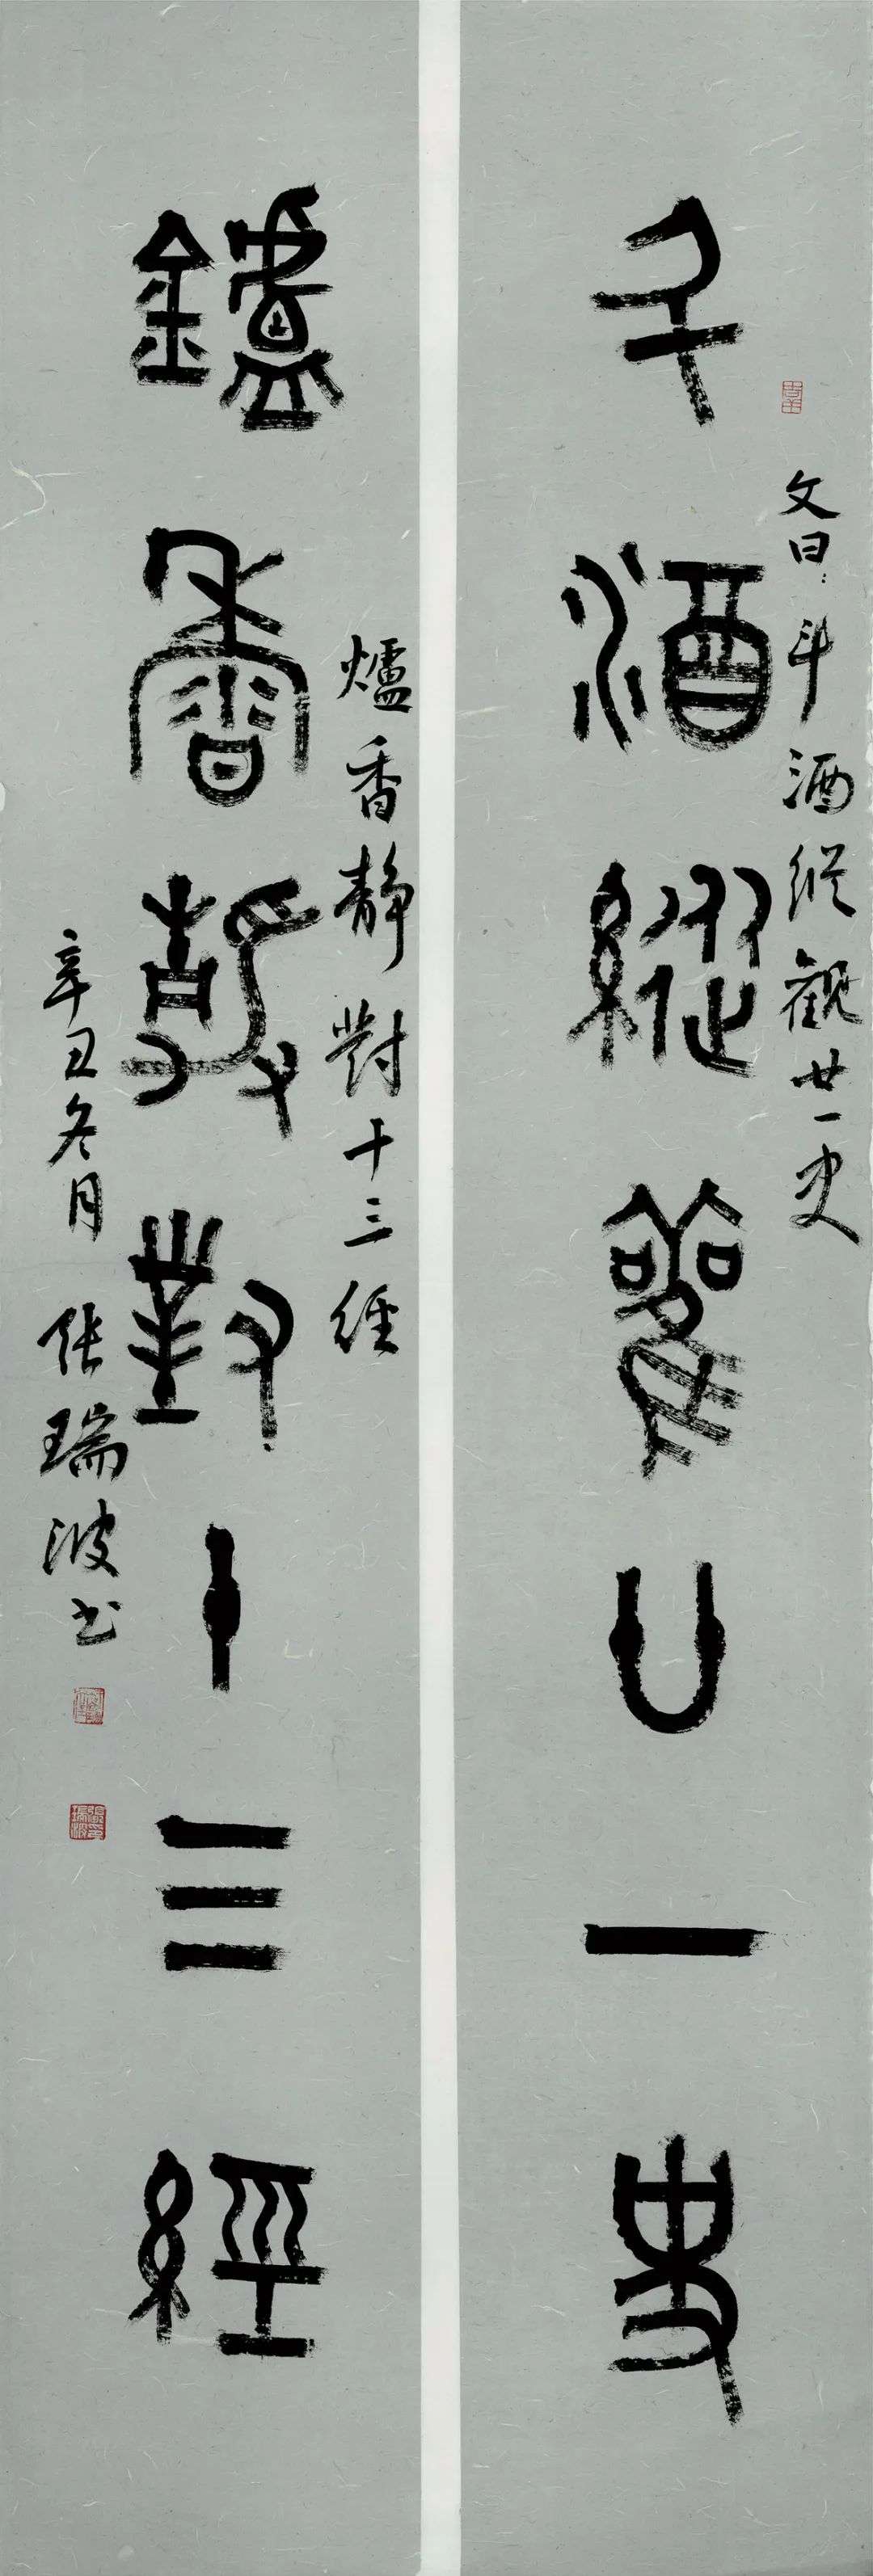 斗酒縱觀廿一史
文曰：斗酒縱觀廿一史
鑪香静對十三經
爐香静對十三經
辛丑冬月 張瑞波书